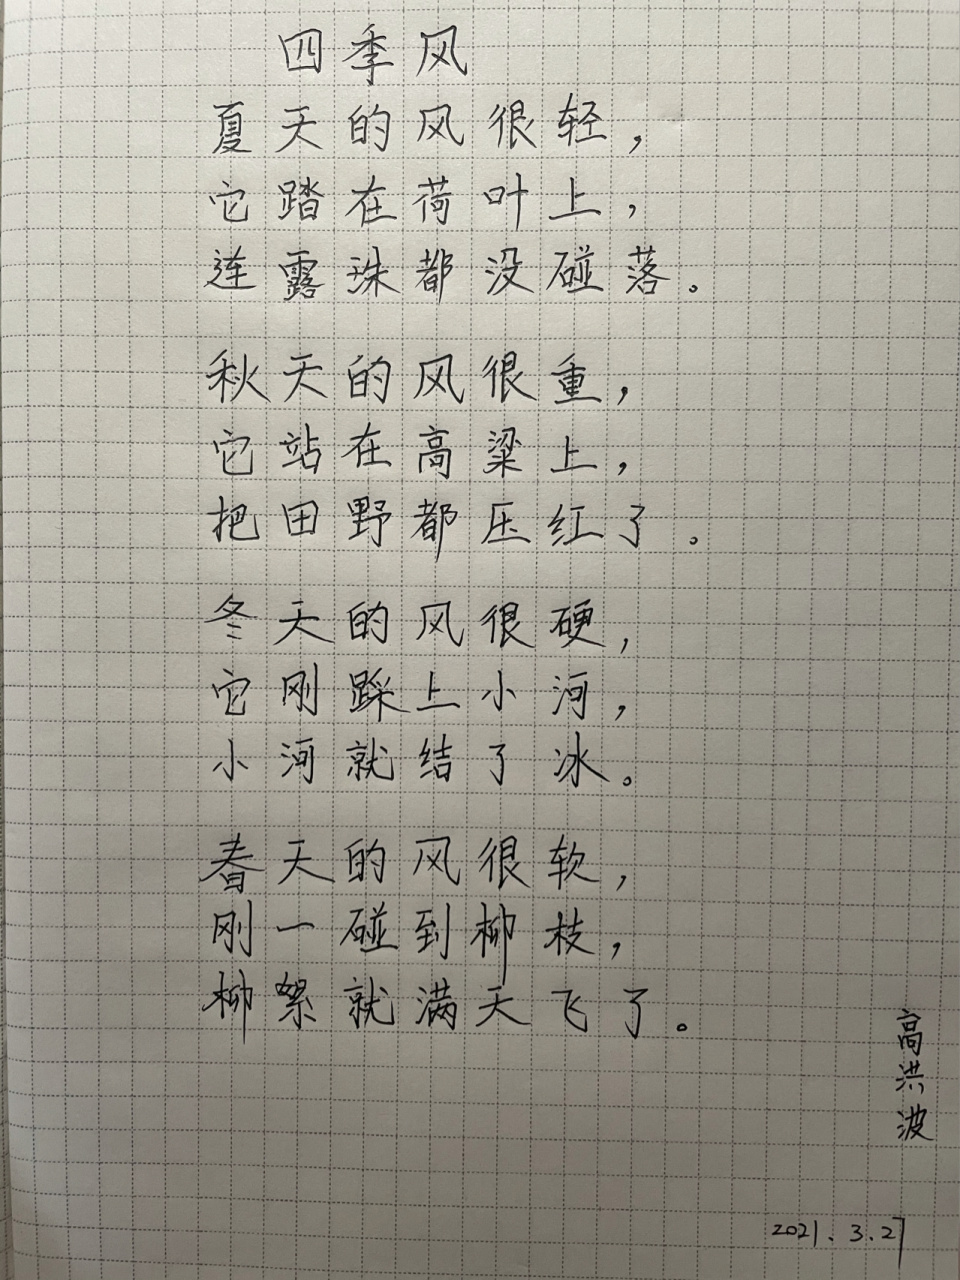 四季风
夏天的风很轻，
它踏在荷叶上，
连露珠都没碰落。
秋天的风很重，
它站在高粱上，
把田野都压红了。
冬天的风很硬，
它刚踩上小河，
小河就结了冰。
春天的风很软，
刚一碰到柳枝，
柳絮就满天飞了。
高洪波
2021.3.27